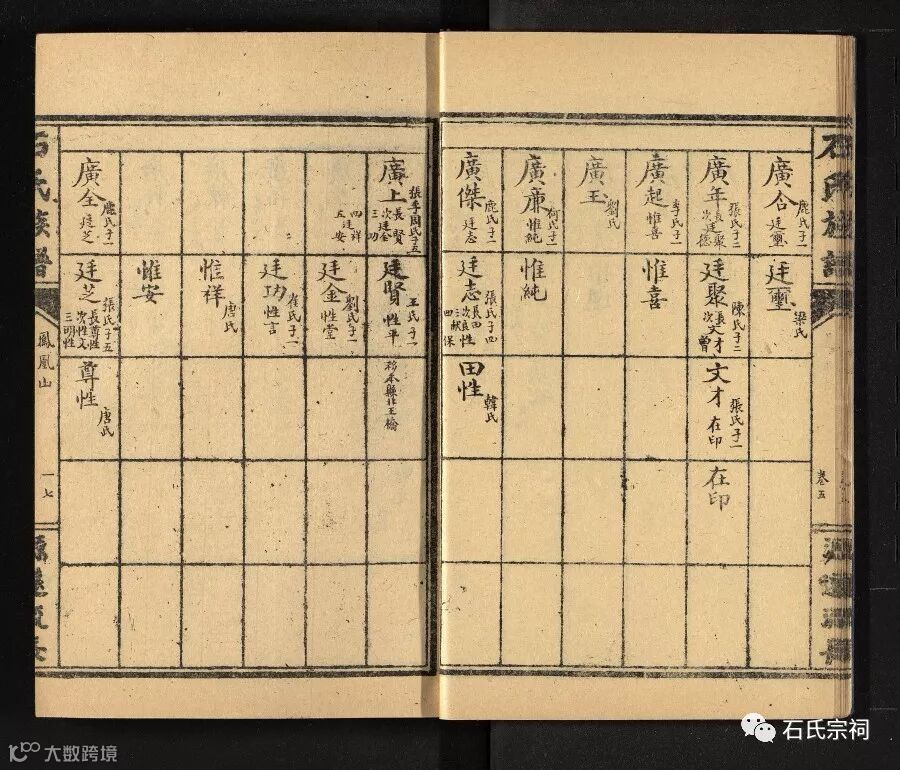 石氏族譜
卷五
廣合 鹿氏子一 廷璽
廷璽 梁氏
廣年 張氏子二 長廷聚 次廷德
廷聚 陳氏子二 長文才 次文曾
文才 張氏子一 在印
在印
廣起 李氏子一 惟喜
惟喜
廣王 劉氏
廣廉 何氏子一 惟純
惟純
廣傑 鹿氏子一 廷志
廷志 張氏子四
田性 韓氏
廣上 張李周氏子五 長賢 次廷金 三功 四祥 五安
廷賢 王氏子一 性平
移本縣北王橋
廷金 劉氏子一 性堂
廷功 崔氏子一 性言
惟祥 唐氏
惟安
廣全 鹿氏子一 廷芝
廷芝 張氏子五 長尊性 次性文 三明性
尊性 唐氏
石氏族譜
鳳凰山
一七
源遠流長
石氏宗祠
大数跨境